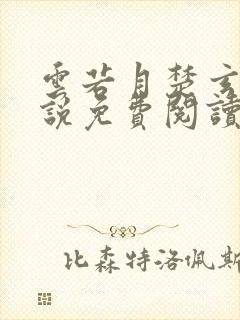 雲若月楚玄
說免費閱讀
比森特洛佩斯